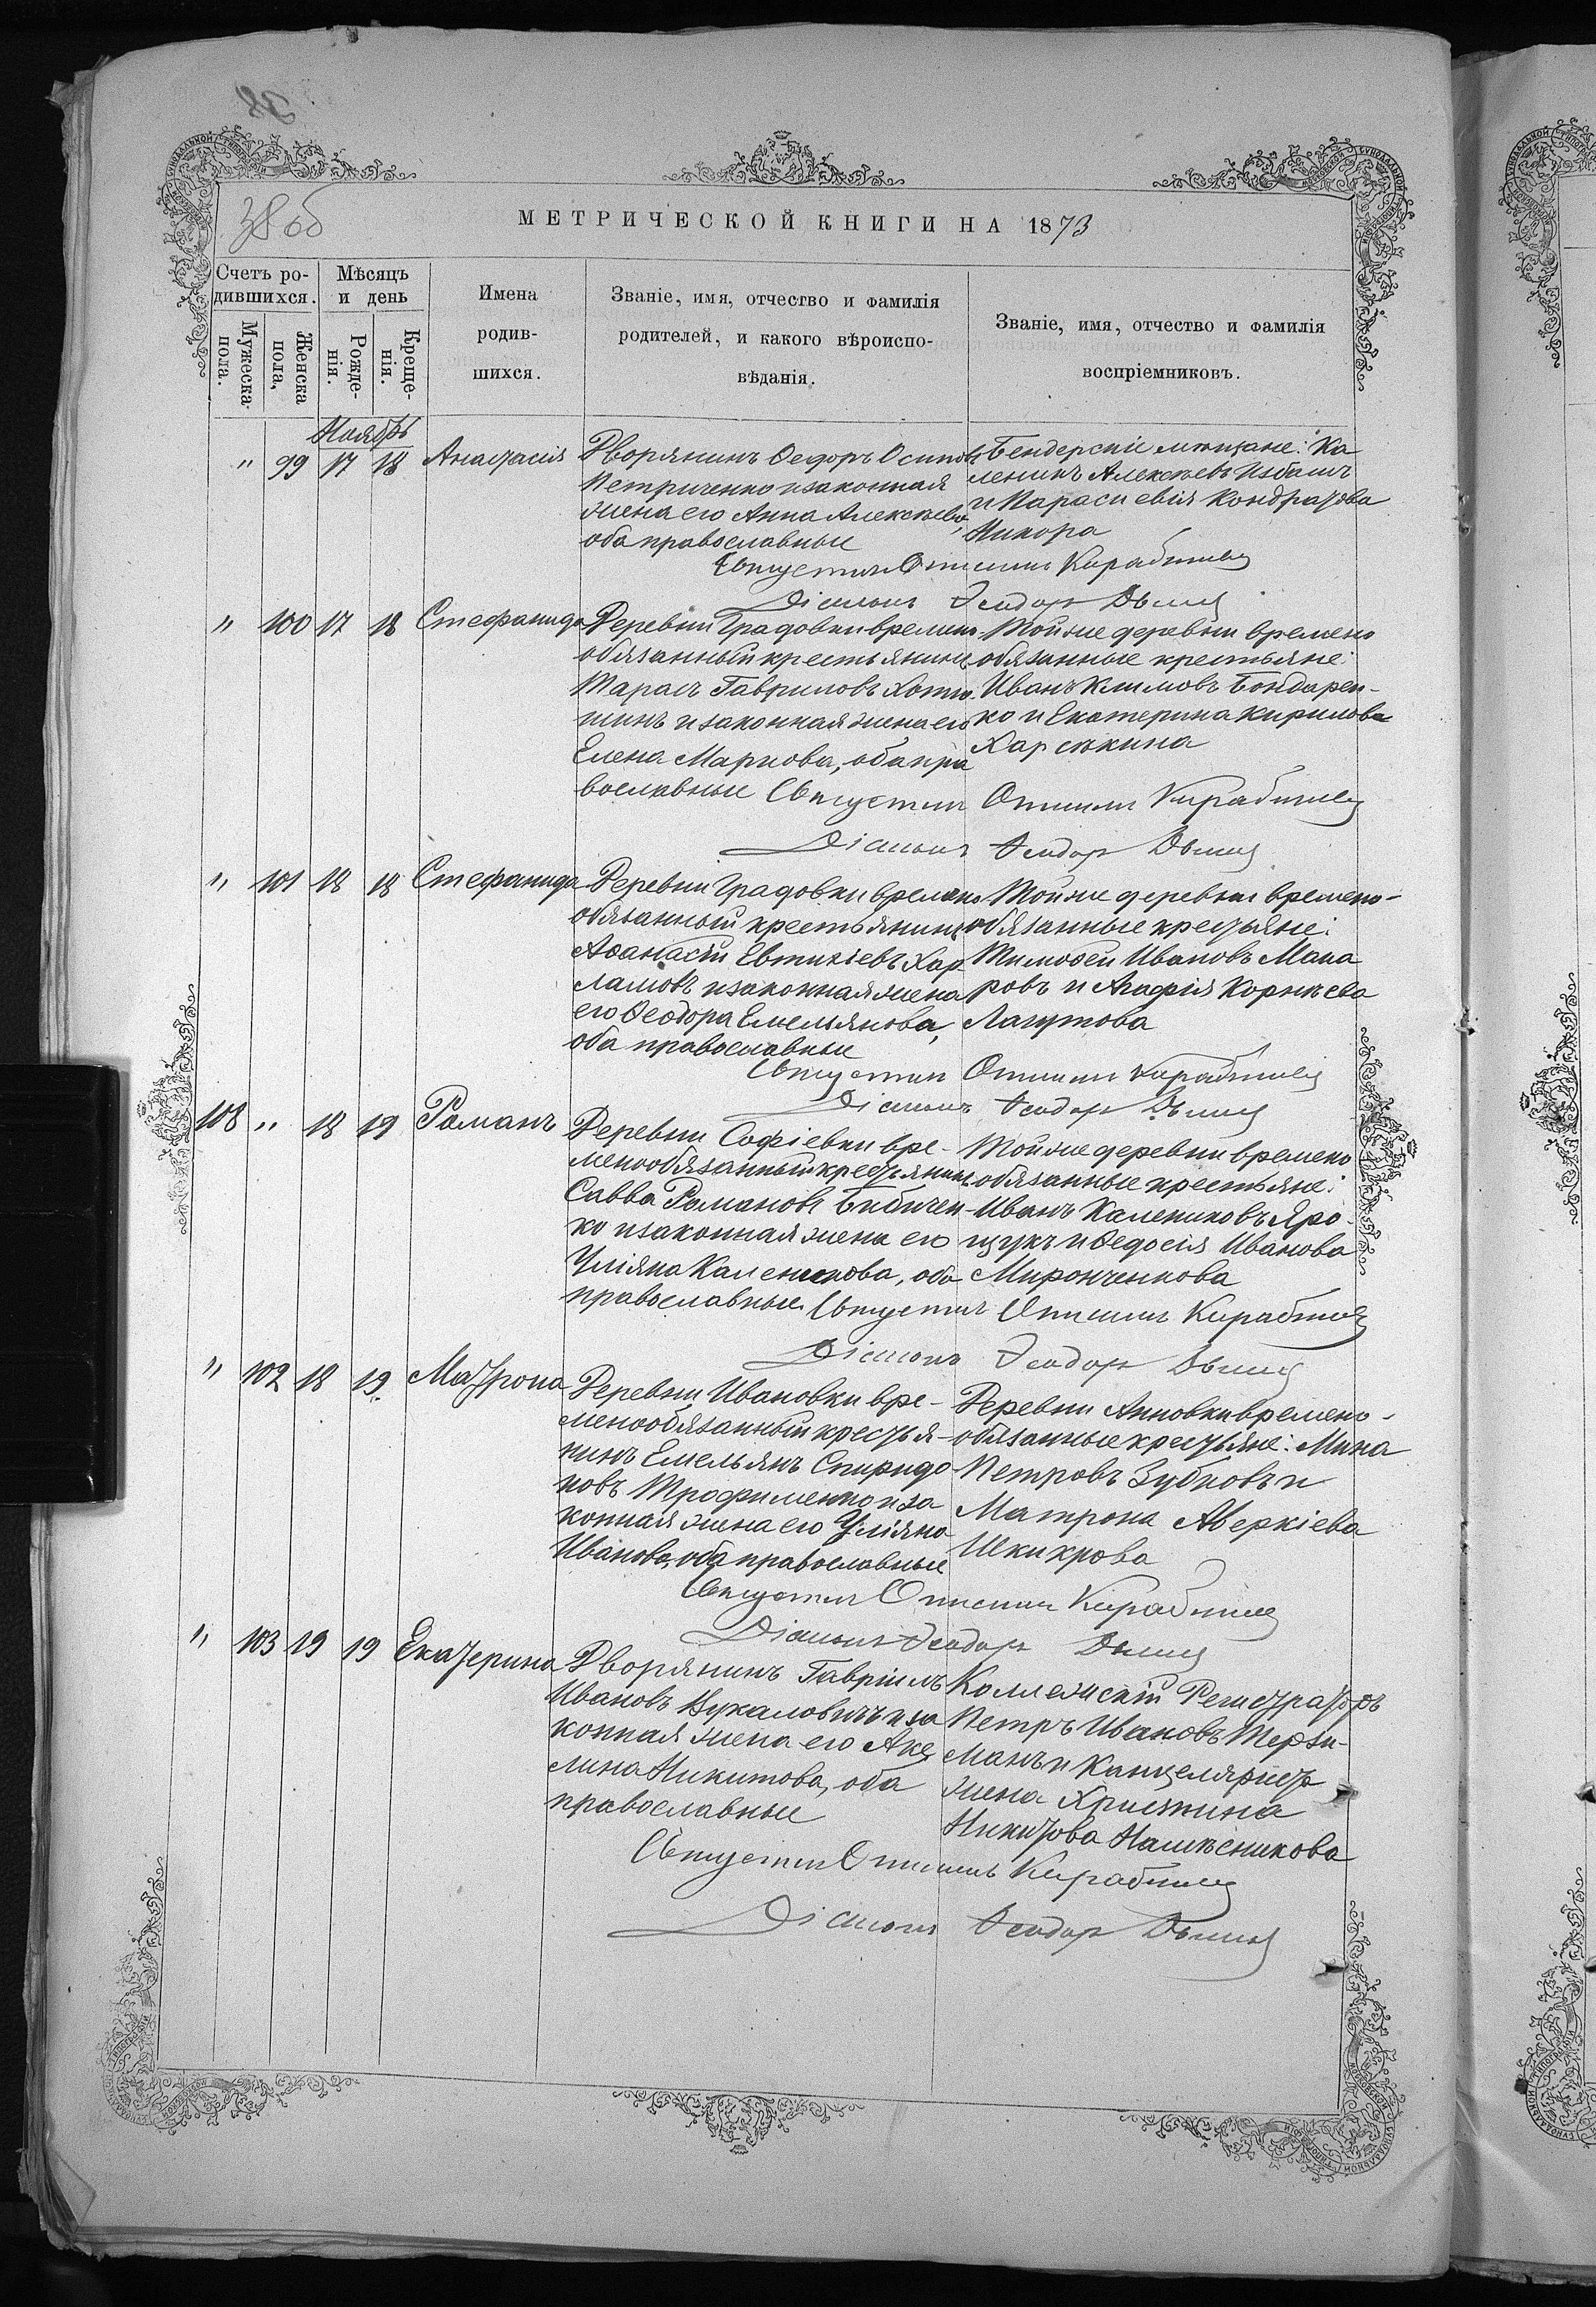 38 об
МЕТРИЧЕСКОЙ КНИГИ НА 1873
Счетъ ро-
дившихся.
Мужеска пола.
Женска пола,
Мѣсяцъ
и день
Рожде-
нія.
Креще-
нія.
Имена
родив-
шихся.
Званіе, имя, отчество и фамилія
родителей, и какого вѣроиспо-
вѣданія.
Званіе, имя, отчество и фамилія
воспріемниковъ.
Ноябрь
" 99 17 18 Анастасія
Дворянинъ Ѳедоръ Осиповъ
Петриченко и законная
жена его Анна Алексѣева,
оба православные
Бендерскіе мѣщане: Ка
леникъ Алексѣевъ Избашъ
и Параскевія Кондратова
Никора
Діаконъ Ѳеодоръ
" 100 17 18 Стефанида
Деревни Градовки времено
обязанный крестьянинъ
Тарасъ Гавриловъ
и законная жена его
Елена Маркова, оба пра
вославные
Той же деревни времено
обязанные крестьяне:
Иванъ Климовъ Бондарен-
ко и Екатерина Кирилова
Харсѣкина
Діаконъ Ѳеодоръ
" 101 18 18 Стефанида
Деревни Градовки времено
обязанный крестьянинъ
Аѳанасій Евтихіевъ Хар
ламовъ и законная жена
его Ѳеодора Емельянова,
оба православные
Той же деревни времено-
обязанные крестьяне:
Тимоѳей Ивановъ Мака
ровъ и Агафія Корнѣева
Лагутова
Діаконъ Ѳеодоръ
108 " 18 19 Романъ
Деревни Софіевки вре-
менообязанный крестьянинъ
Савва Романовъ Бибичен-
ко и законная жена его
Уліяна Каленикова, оба
православные
Той же деревни времено
обязанные крестьяне:
Иванъ Калениковъ Яро-
щукъ и Ѳедосія Иванова
Мironченкова
Діаконъ Ѳеодоръ
" 102 18 19 Матрона
Деревни Ивановки вре-
менообязанный крестья-
нинъ Емельянъ Спиридо
новъ Трофименко и за
конная жена его Уліяна
Иванова, оба православные
Деревни Анновки времено-
обязанные крестьяне: Мина
Петровъ Зубковъ и
Матрона Аверкіева
Діаконъ Ѳеодоръ
" 103 19 19 Екатерина
Дворянинъ Гавріилъ
Ивановъ Вукаловичъ и за
конная жена его Аке
лина Никитова, оба
православные
Коллежскій Регистраторъ
Петръ Ивановъ Терзи-
манъ и Канцеляриста
жена Христина
Никитова Намѣсникова
Діаконъ Ѳеодоръ